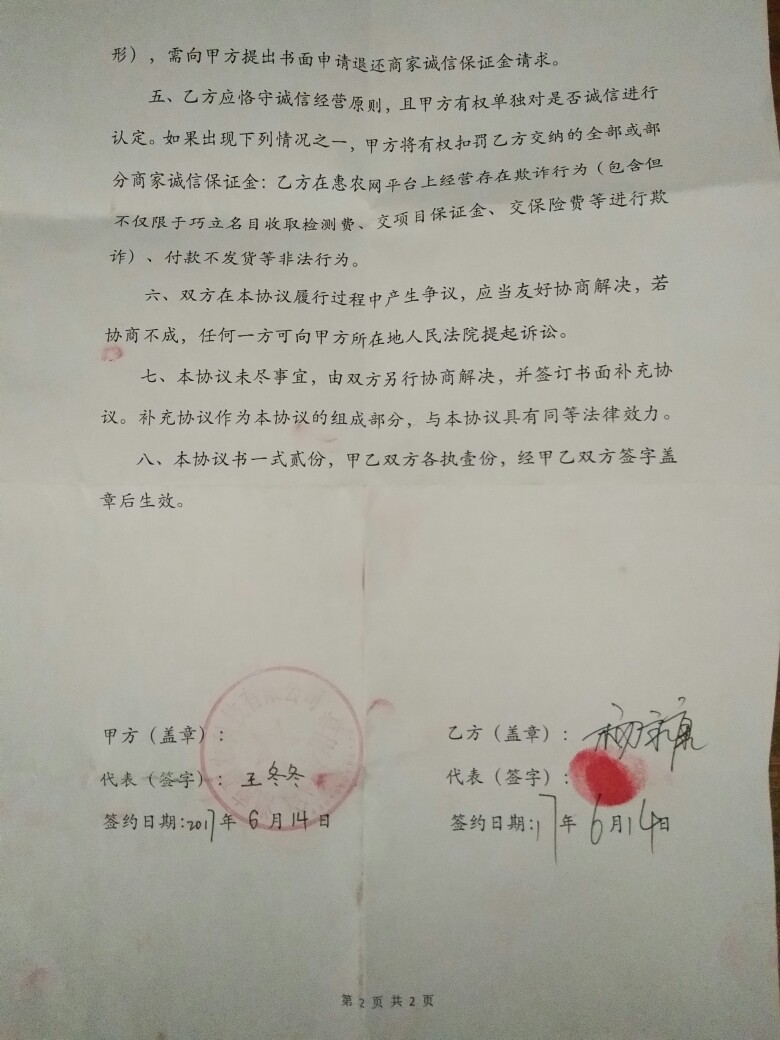 形），需向甲方提出书面申请退还商家诚信保证金请求。
五、乙方应恪守诚信经营原则，且甲方有权单独对是否诚信进行
认定。如果出现下列情况之一，甲方将有权扣罚乙方交纳的全部或部
分商家诚信保证金：乙方在惠农网平台上经营存在欺诈行为（包含但
不仅限于巧立名目收取检测费、交项目保证金、交保险费等进行欺
诈）、付款不发货等非法行为。
六、双方在本协议履行过程中产生争议，应当友好协商解决，若
协商不成，任何一方可向甲方所在地人民法院提起诉讼。
七、本协议未尽事宜，由双方另行协商解决，并签订书面补充协
议。补充协议作为本协议的组成部分，与本协议具有同等法律效力。
八、本协议书一式贰份，甲乙双方各执壹份，经甲乙双方签字盖
章后生效。
甲方（盖章）：
乙方（盖章）：
代表（签字）：王冬冬
代表（签字）：
签约日期:2017年6月14日
签约日期:17年6月14日
第2页共2页